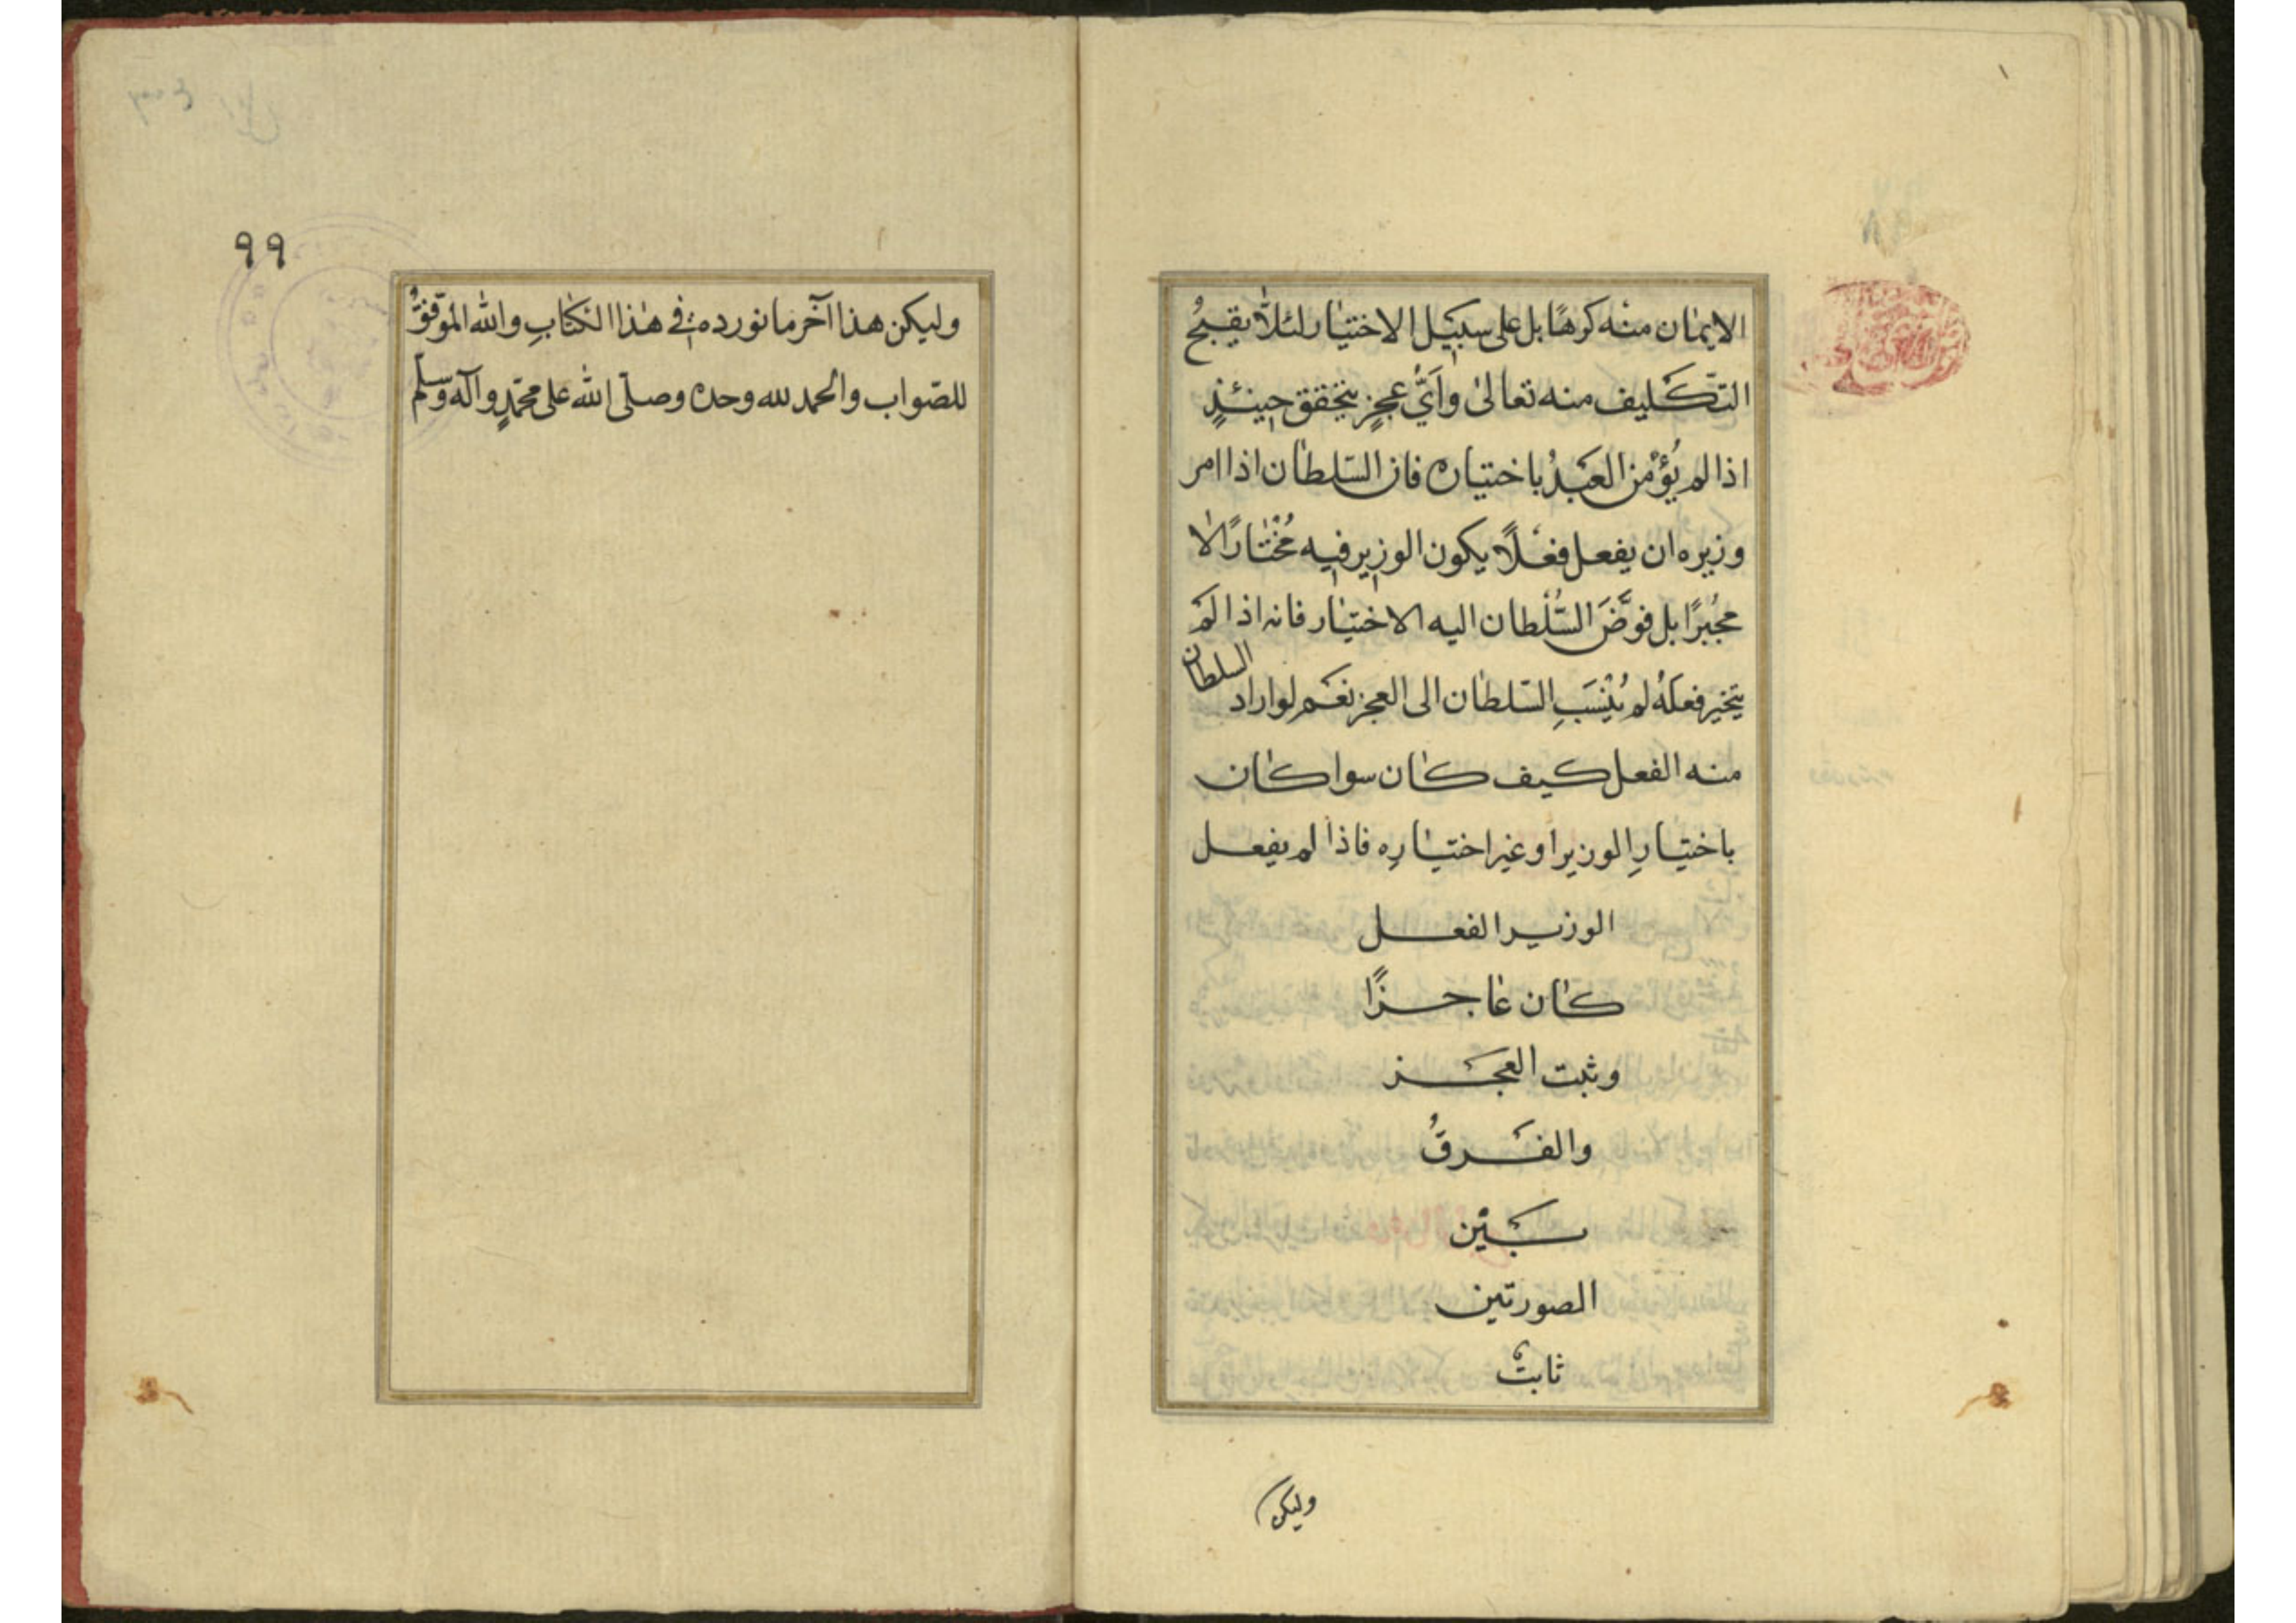 الايمان منه كرهًا بل على سبيل الاختيار لئلّا يقبحُ
التّكليف منه تعالى وأيُّ عجزٍ يتحقق حينئذٍ
اذا لم يُؤمن العبدُ باختياره فان السّلطان اذا امر
وزيره ان يفعل فعلًا يكون الوزير فيه مُختارًا لا
مجُبرًا بل فوَّضَ السُّلْطان اليه الاختيار فانه اذا لم
يتخير فعلَهُ لم يُنسَبِ السّلطان الى العجز نعم لو اراد السلطان
منه الفعل كيف كان سوا كان
باختيارِ الوزير او غير اختيارِه فاذا لم يفعل
الوزير الفعل
كان عاجزًا
وثبت العجز
والفرقُ
بَيْن
الصورتين
ثابتٌ
وليكن
٩٩
وليكن هذا آخر ما نورده في هذا الكتابِ والله الموّفقُ
للصّواب والحمد لله وحده وصلّى الله على محمّدٍ وآله وسلّم